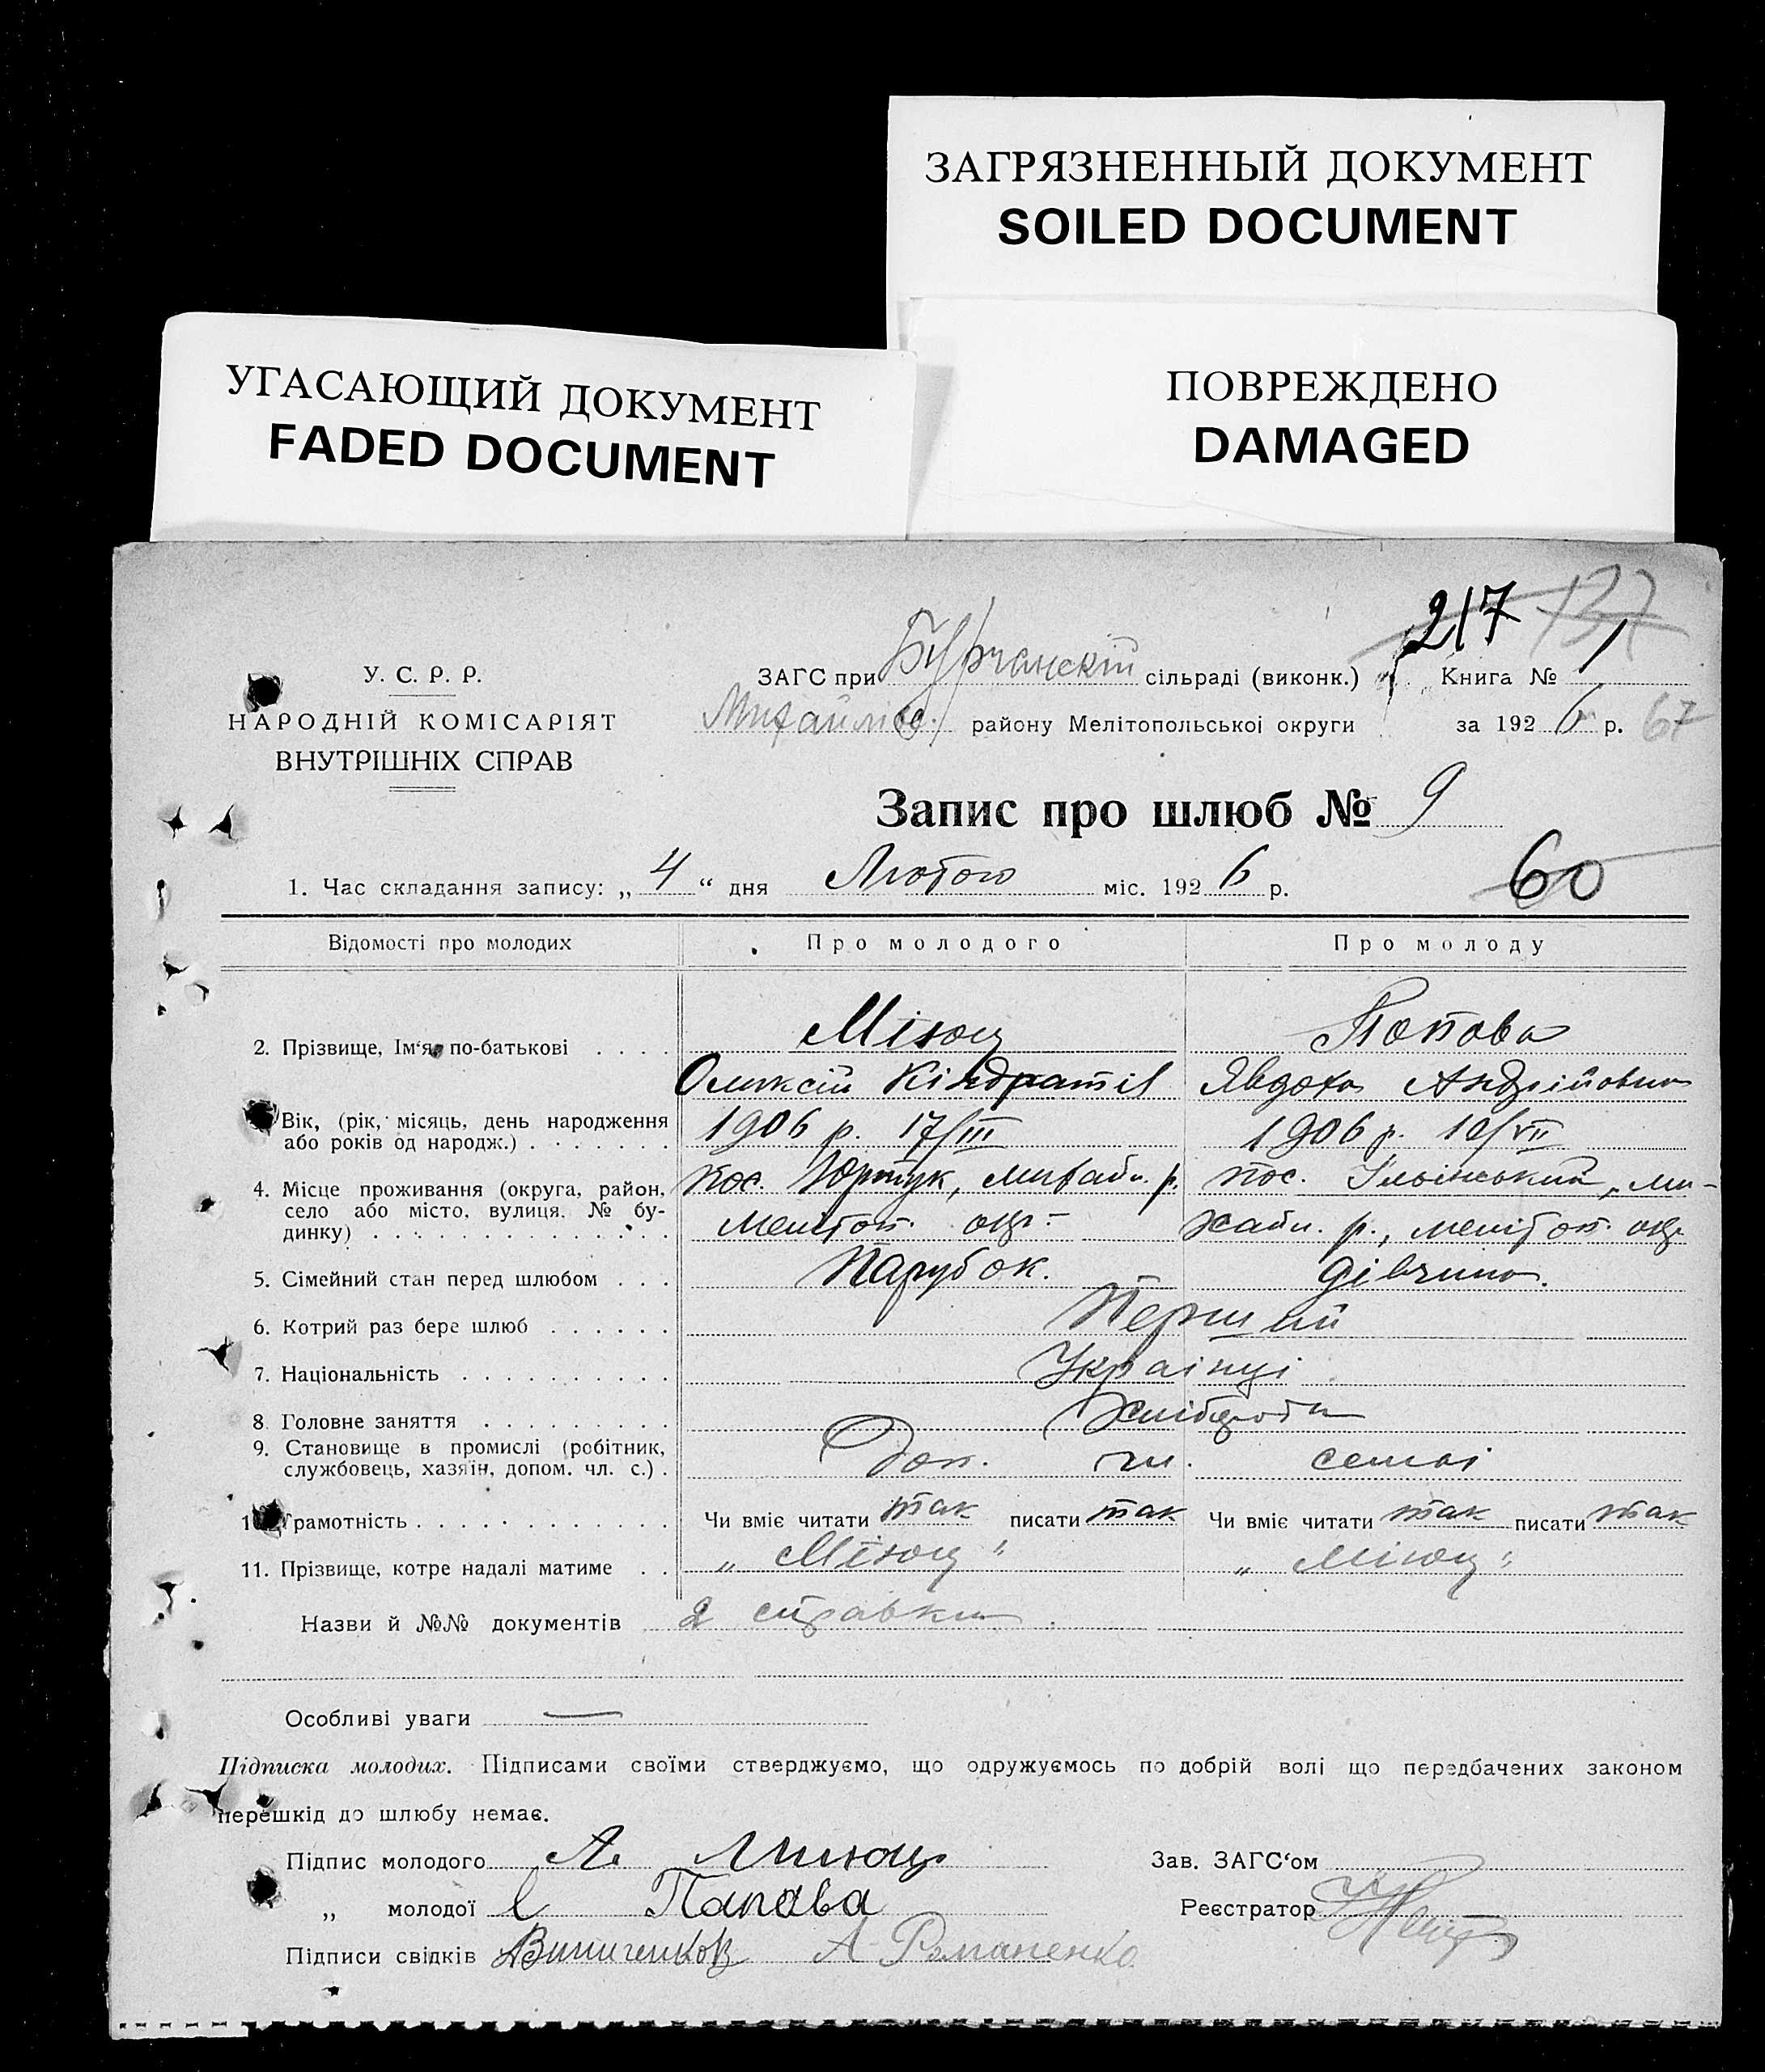 ЗАГРЯЗНЕННЫЙ ДОКУМЕНТ
SOILED DOCUMENT
УГАСАЮЩИЙ ДОКУМЕНТ
FADED DOCUMENT
ПОВРЕЖДЕНО
DAMAGED
217 137
У. С. Р. Р.
НАРОДНІЙ КОМІСАРІЯТ
ВНУТРІШНІХ СПРАВ
ЗАГС при Бурчанскій сільраді (виконк.) Книга № 1
Михайлів. району Мелітопольської округи за 1926 р. 67
Запис про шлюб № 9
1. Час складання запису: „4“ дня Лютого міс. 1926 р.
60
Відомості про молодих Про молодого Про молоду
2. Прізвище, Ім'я, по-батькові . . . . Мізюц Попова
Олексій Кіндратів Явдоха Андрійовна
Вік, (рік, місяць, день народження або років од народж.) 1906 р. 17/III 1906 р. 10/VII
4. Місце проживання (округа, район, пос. Юртук, Михайл. р. пос. Ільїнський, Ми-
село або місто, вулиця. № бу- Меліт оп. окр. хайл. р., меліт оп. окр
динку)
5. Сімейний стан перед шлюбом . . . Парубок. дівчина.
6. Котрий раз бере шлюб Перший
7. Національність Українці
8. Головне заняття Хлібороби
9. Становище в промислі (робітник,
службовець, хазяїн, допом. чл. с.) . Доп. чл. семьї
10. Грамотність Чи вміє читати так писати так Чи вміє читати так писати так
11. Прізвище, котре надалі матиме . . „Мізюц“ „Мізюц“
Назви й №№ документів 2 справки.
Особливі уваги —
Підписка молодих. Підписами своїми стверджуємо, що одружуємось по добрій волі що передбачених законом
перешкід до шлюбу немає.
Підпис молодого А. Мизюц Зав. ЗАГС'ом
„ молодої Е Папава Реєстратор
Підписи свідків Виниченков А Романенко